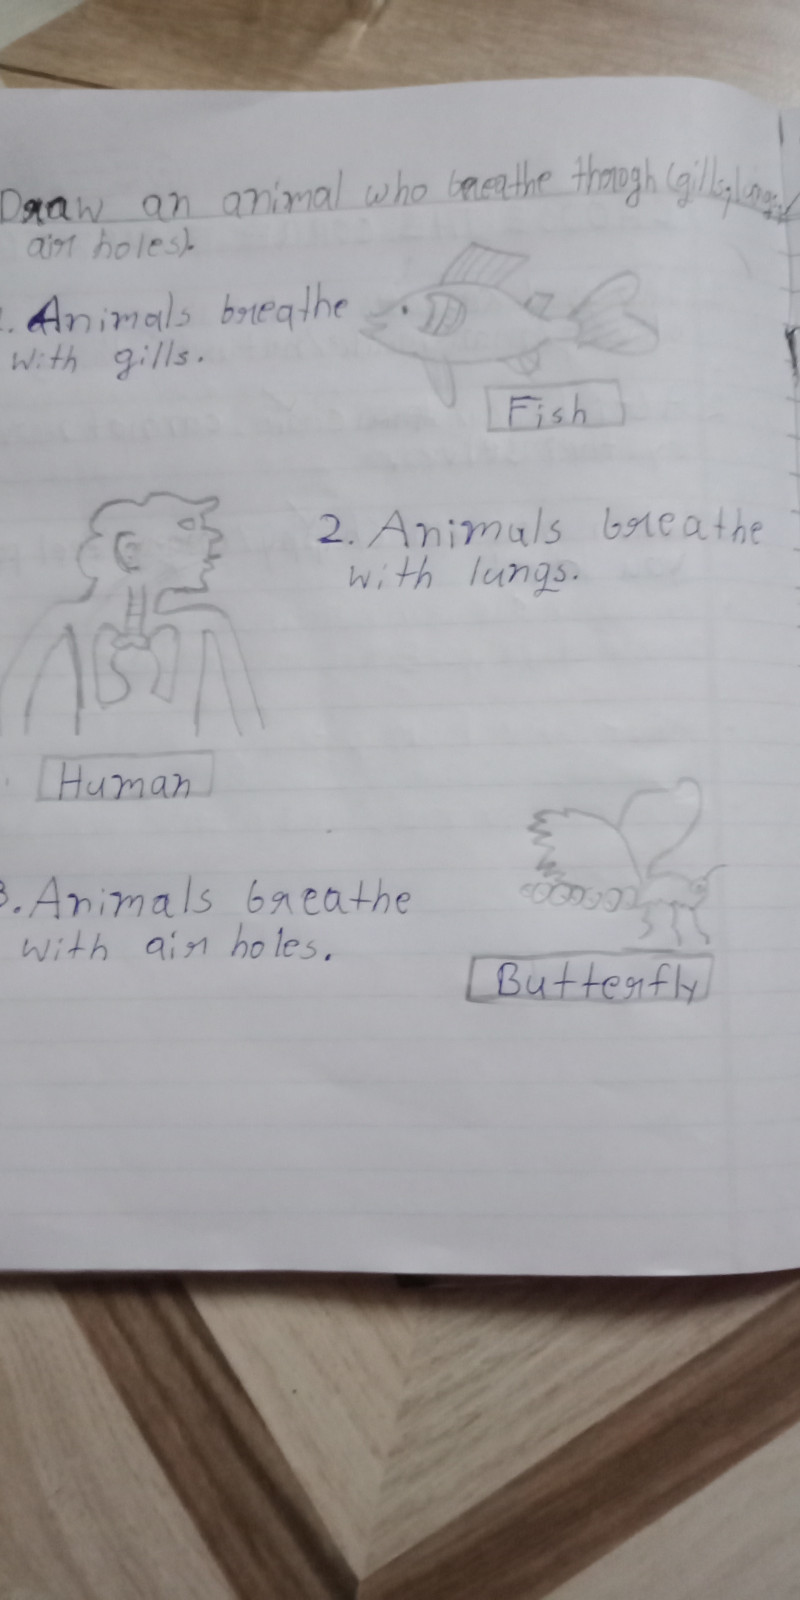 Draw an animal who breathe thorogh (gills, lungs,
air holes).
1. Animals breathe
with gills.
Fish
2. Animals breathe
with lungs.
Human
3. Animals breathe
with air holes.
Butterfly